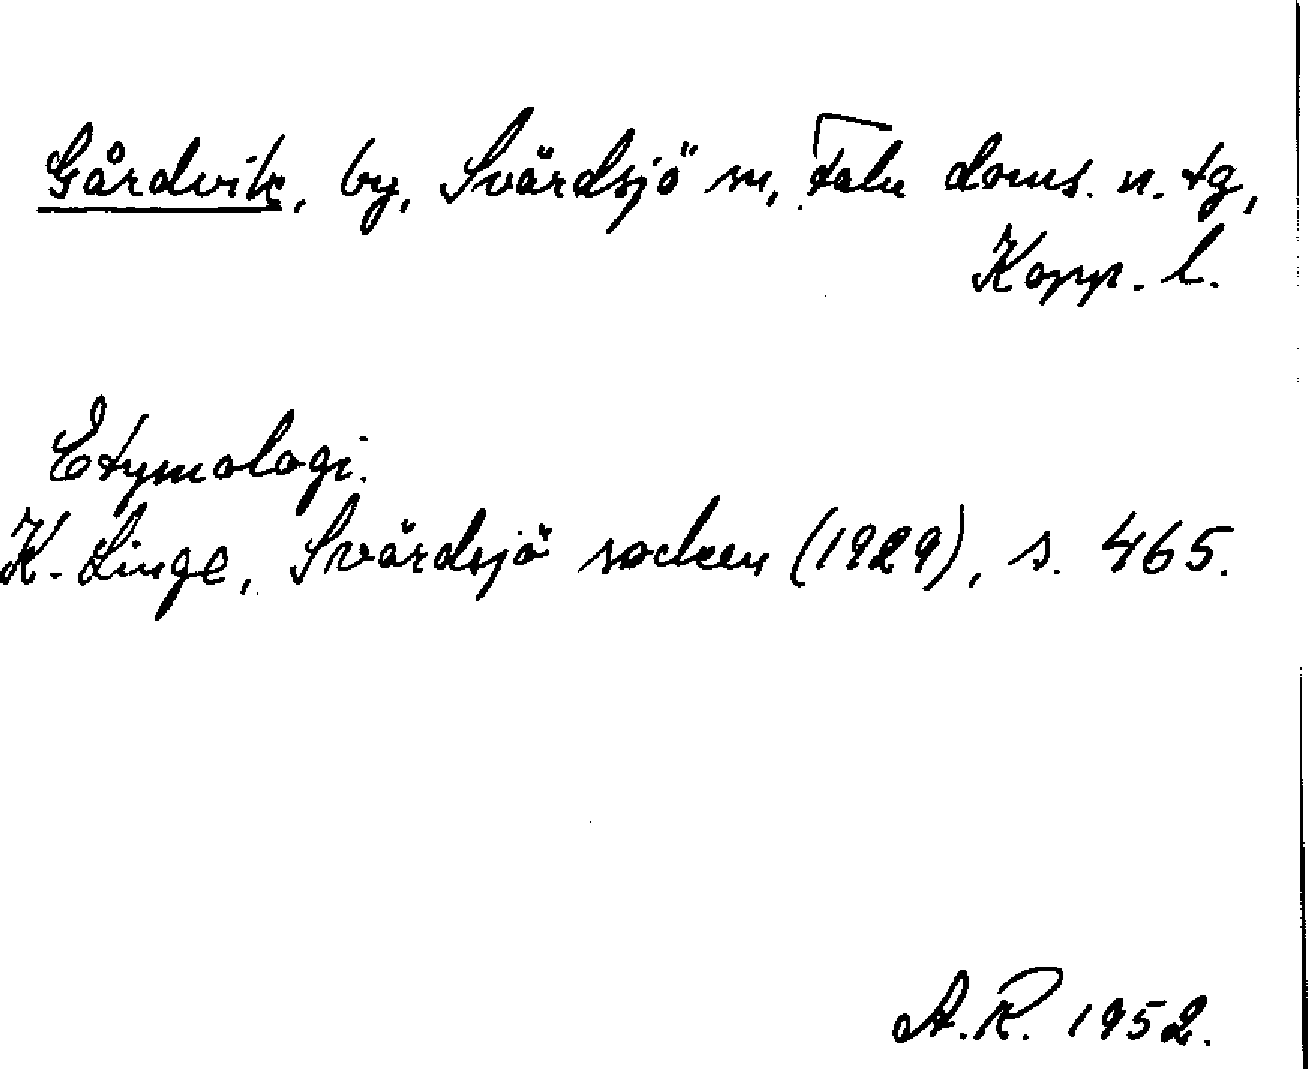 Gårdvik, by, Svärdsjö sn, Falu doms. n. tg,
Kopp. l.
Etymologi.
K. Linge, Svärdsjö socken (1929), s. 465.
A.R. 1952.